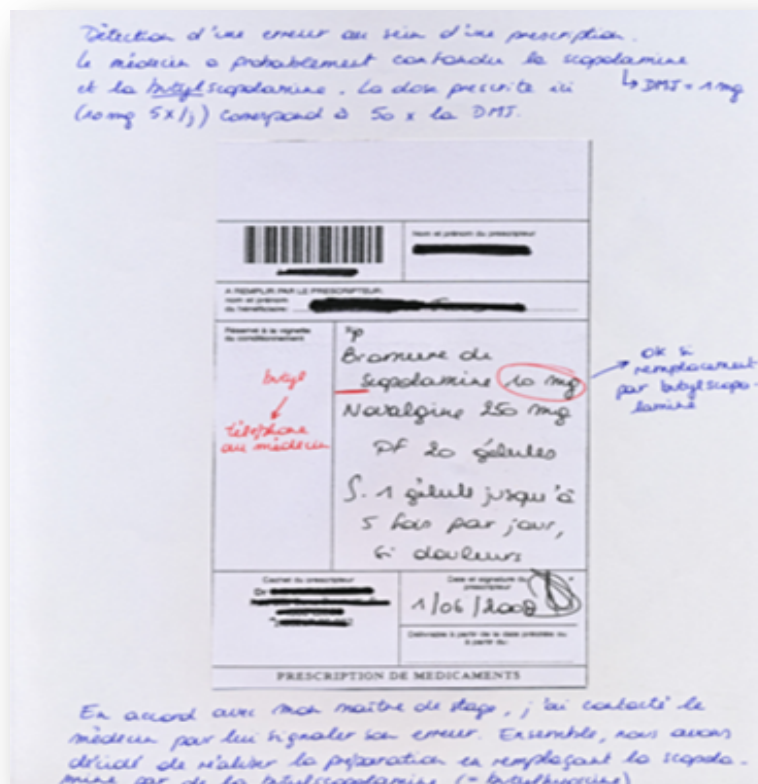 Détection d'une erreur au sein d'une prescription.
Le médecin a probablement confondu la scopolamine
et la butylscopolamine. La dose prescrite ici
↳ DMJ = 1 mg
(10 mg 5x/j) correspond à 50 x la DMJ.
Nom et prénom du prescripteur
A REMPLIR PAR LE PRESCRIPTEUR:
nom et prénom
du bénéficiaire:
Réservé à la vignette
du conditionnement
R/
Bromure de
scopolamine 10 mg
Novalgine 250 mg
DF 20 gélules
S. 1 gélule jusqu'à
5 fois par jour,
si douleurs
butyl
téléphone
au médecin
OK si
remplacement
par butylscopo-
lamine
Cachet du prescripteur
Dr
Date et signature du
prescripteur
1/06/2008
Délivrable à partir de la date précitée ou
à partir du:
PRESCRIPTION DE MEDICAMENTS
En accord avec mon maître de stage, j'ai contacté le
médecin pour lui signaler son erreur. Ensemble, nous avons
décidé de réaliser la préparation en remplaçant la scopola-
mine par de la butylscopolamine (= butylhyoscine)